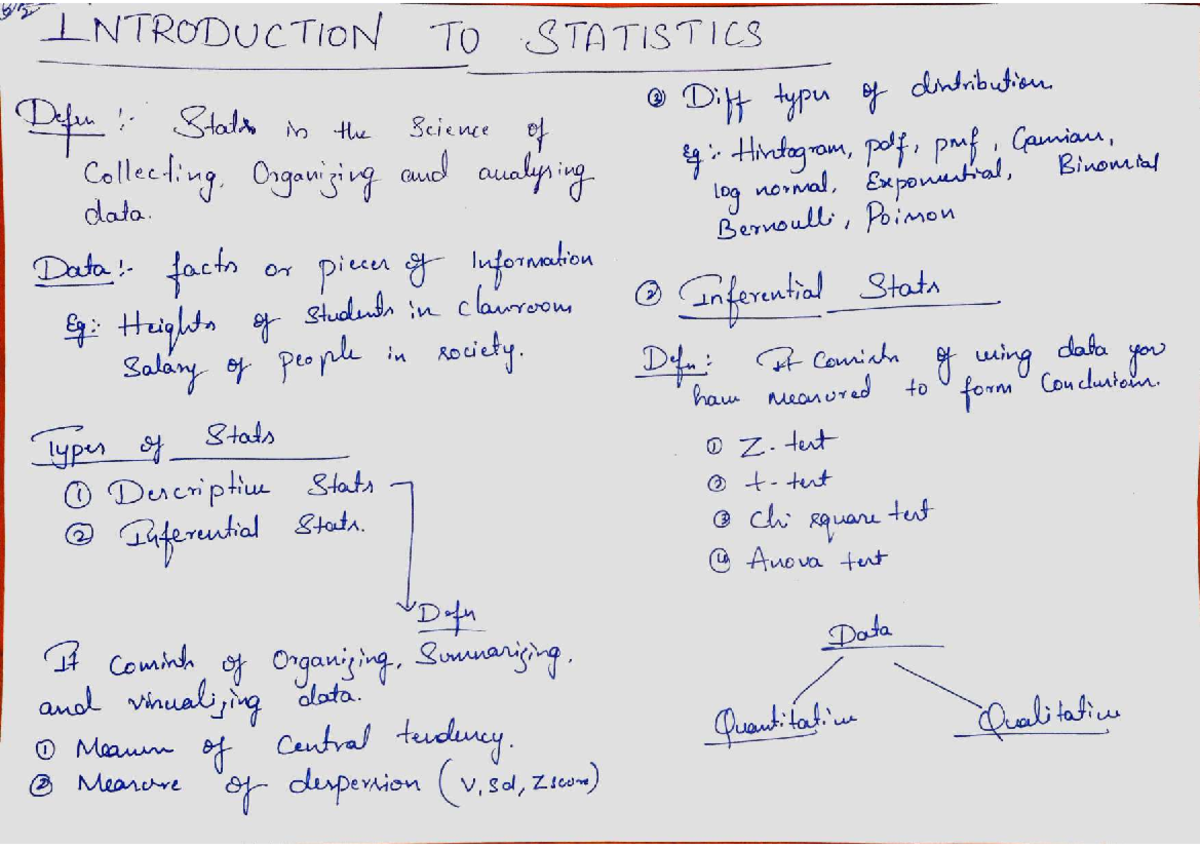 INTRODUCTION TO STATISTICS
Defn :- Stats is the Science of
Collecting, Organizing and analysing
data.
Data :- facts or pieces of Information
Eg :- Heights of Students in classroom
Salary of people in society.
Types of Stats
① Descriptive Stats
② Inferential Stats.
Defn
It Consists of Organizing, Summarizing,
and visualizing data.
① Measure of Central tendency.
② Measure of despersion (V, Sd, Zscore)
③ Diff types of distribution
Eg :- Histogram, pdf, pmf, Gaussian,
log normal, Exponential, Binomial
Bernoulli, Poisson
② Inferential Stats
Defn : It Consists of using data you
have measured to form Conclusions.
① Z-test
② t-test
③ Chi square test
④ Anova test
Data
Quantitative Qualitative